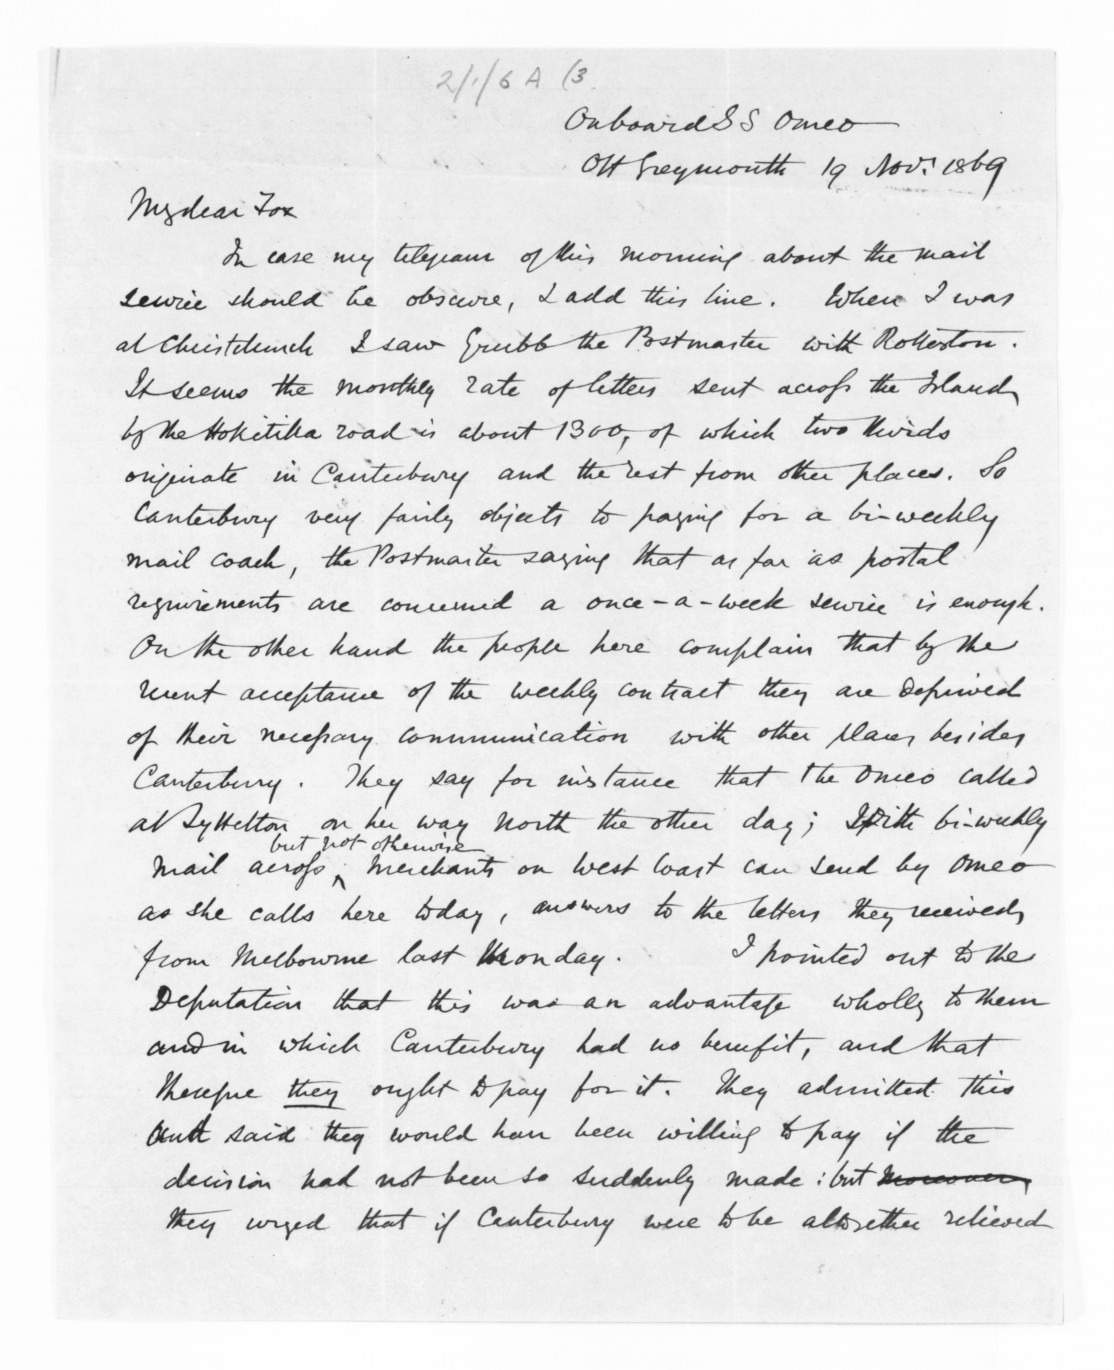 2/1/6 A (3.
On board S S Omeo
Off Greymouth 19 Nov: 1869
My dear Fox
In case my telegram of this morning about the mail
service should be obscure, I add this line. When I was
at Christchurch I saw Grubb the Postmaster with Rolleston.
It seems the monthly rate of letters sent across the Island
by the Hokitika road is about 1300, of which two thirds
originate in Canterbury and the rest from other places. So
Canterbury very fairly objects to paying for a bi-weekly
mail coach, the Postmaster saying that as far as postal
requirements are concerned a once-a-week service is enough.
On the other hand the people here complain that by the
recent acceptance of the weekly contract they are deprived
of their necessary communication with other places besides
Canterbury. They say for instance that the Omeo called
at Lyttelton on her way North the other day; With bi-weekly
but not otherwise
mail across, merchants on West Coast can send by Omeo
as she calls here today, answers to the letters they received
from Melbourne last Monday. I pointed out to the
Deputation that this was an advantage wholly to them
and in which Canterbury had no benefit, and that
therefore they ought to pay for it. They admitted this
and said they would have been willing to pay if the
decision had not been so suddenly made: but moreover
they urged that if Canterbury were to be altogether relieved